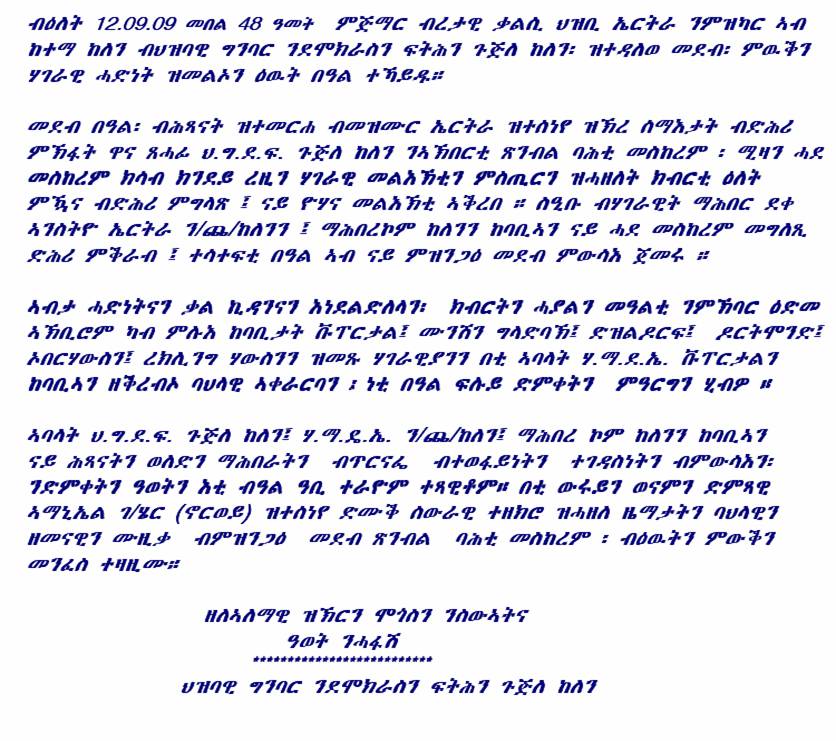 ብዕለት 12.09.09 መበል 48 ዓመት ምጅማር ብረታዊ ቃልሲ ህዝቢ ኤርትራ ንምዝካር ኣብ
ከተማ ከለን ብህዝባዊ ግንባር ንደሞክራስን ፍትሕን ጉጅለ ከለን፡ ዝተዳለወ መደብ፡ ምዉቕን
ሃገራዊ ሓድነት ዝመልኦን ዕዉት በዓል ተኻይዱ።
መደብ በዓል፡ ብሕጻናት ዝተመርሐ ብመዝሙር ኤርትራ ዝተሰነየ ዝኽረ ሰማእታት ብድሕሪ
ምኽፋት ዋና ጸሓፊ ህ.ግ.ደ.ፍ. ጉጅለ ከለን ንኣኽበርቲ ጽንብል ባሕቲ መስከረም ፡ ሚዛን ሓደ
መስከረም ክሳብ ክንደይ ረዚን ሃገራዊ መልእኽቲን ምስጢርን ዝሓዘለት ክብርቲ ዕለት
ምዃና ብድሕሪ ምግላጽ ፤ ናይ ዮሃና መልእኽቲ ኣቕረበ ። ስዒቡ ብሃገራዊት ማሕበር ደቀ
ኣንስትዮ ኤርትራ ን/ጨ/ከለንን ፤ ማሕበረኮም ከለንን ከባቢኣን ናይ ሓደ መስከረም መግለጺ
ድሕሪ ምቕራብ ፤ ተሳተፍቲ በዓል ኣብ ናይ ምዝንጋዕ መደብ ምውሳእ ጀመሩ ።
ኣብታ ሓድነትናን ቃል ኪዳንናን እነደልድለላን፡ ክብርትን ሓያልን መዓልቲ ንምኽባር ዕድመ
ኣኽቢሮም ካብ ምሉእ ከባቢታት ቩፐርታል፤ ሙንሸን ግላድባኽ፤ ድዝልዶርፍ፤ ዶርትሞንድ፤
ኦበርሃውሰን፤ ረክሊንግ ሃውሰንን ዝመጹ ሃገራዊያንን በቲ ኣባላት ሃ.ማ.ደ.ኤ. ቩፐርታልን
ከባቢኣን ዘቕረብኦ ባህላዊ ኣቀራርባን ፤ ነቲ በዓል ፍሉይ ድምቀትን ምዕርግን ሂብዎ ።
ኣባላት ህ.ግ.ደ.ፍ. ጉጅለ ከለን፤ ሃ.ማ.ዴ.ኤ. ን/ጨ/ከለን፤ ማሕበረ ኮም ከለንን ከባቢኣን
ናይ ሕጻናትን ወለድን ማሕበራትን ብጥርናፌ ብተወፋይነትን ተገዳስነትን ብምውሳእን፡
ንድምቀትን ዓወትን እቲ ብዓል ዓቢ ተራዮም ተጻዊቶም። በቲ ውሩይን ወናምን ድምጻዊ
ኣማኒኤል ገ/ሄር (ኖርወይ) ዝተሰነየ ድሙቕ ሰውራዊ ተዘክሮ ዝሓዘለ ዜማታትን ባህላዊን
ዘመናዊን ሙዚቃ ብምዝንጋዕ መደብ ጽንብል ባሕቲ መስከረም ፡ ብዕዉትን ምውቕን
መንፈስ ተዛዚሙ።
ዘለኣለማዊ ዝኽርን ሞጎስን ንስውኣትና
ዓወት ንሓፋሽ
**************************
ህዝባዊ ግንባር ንደሞክራስን ፍትሕን ጉጅለ ከለን